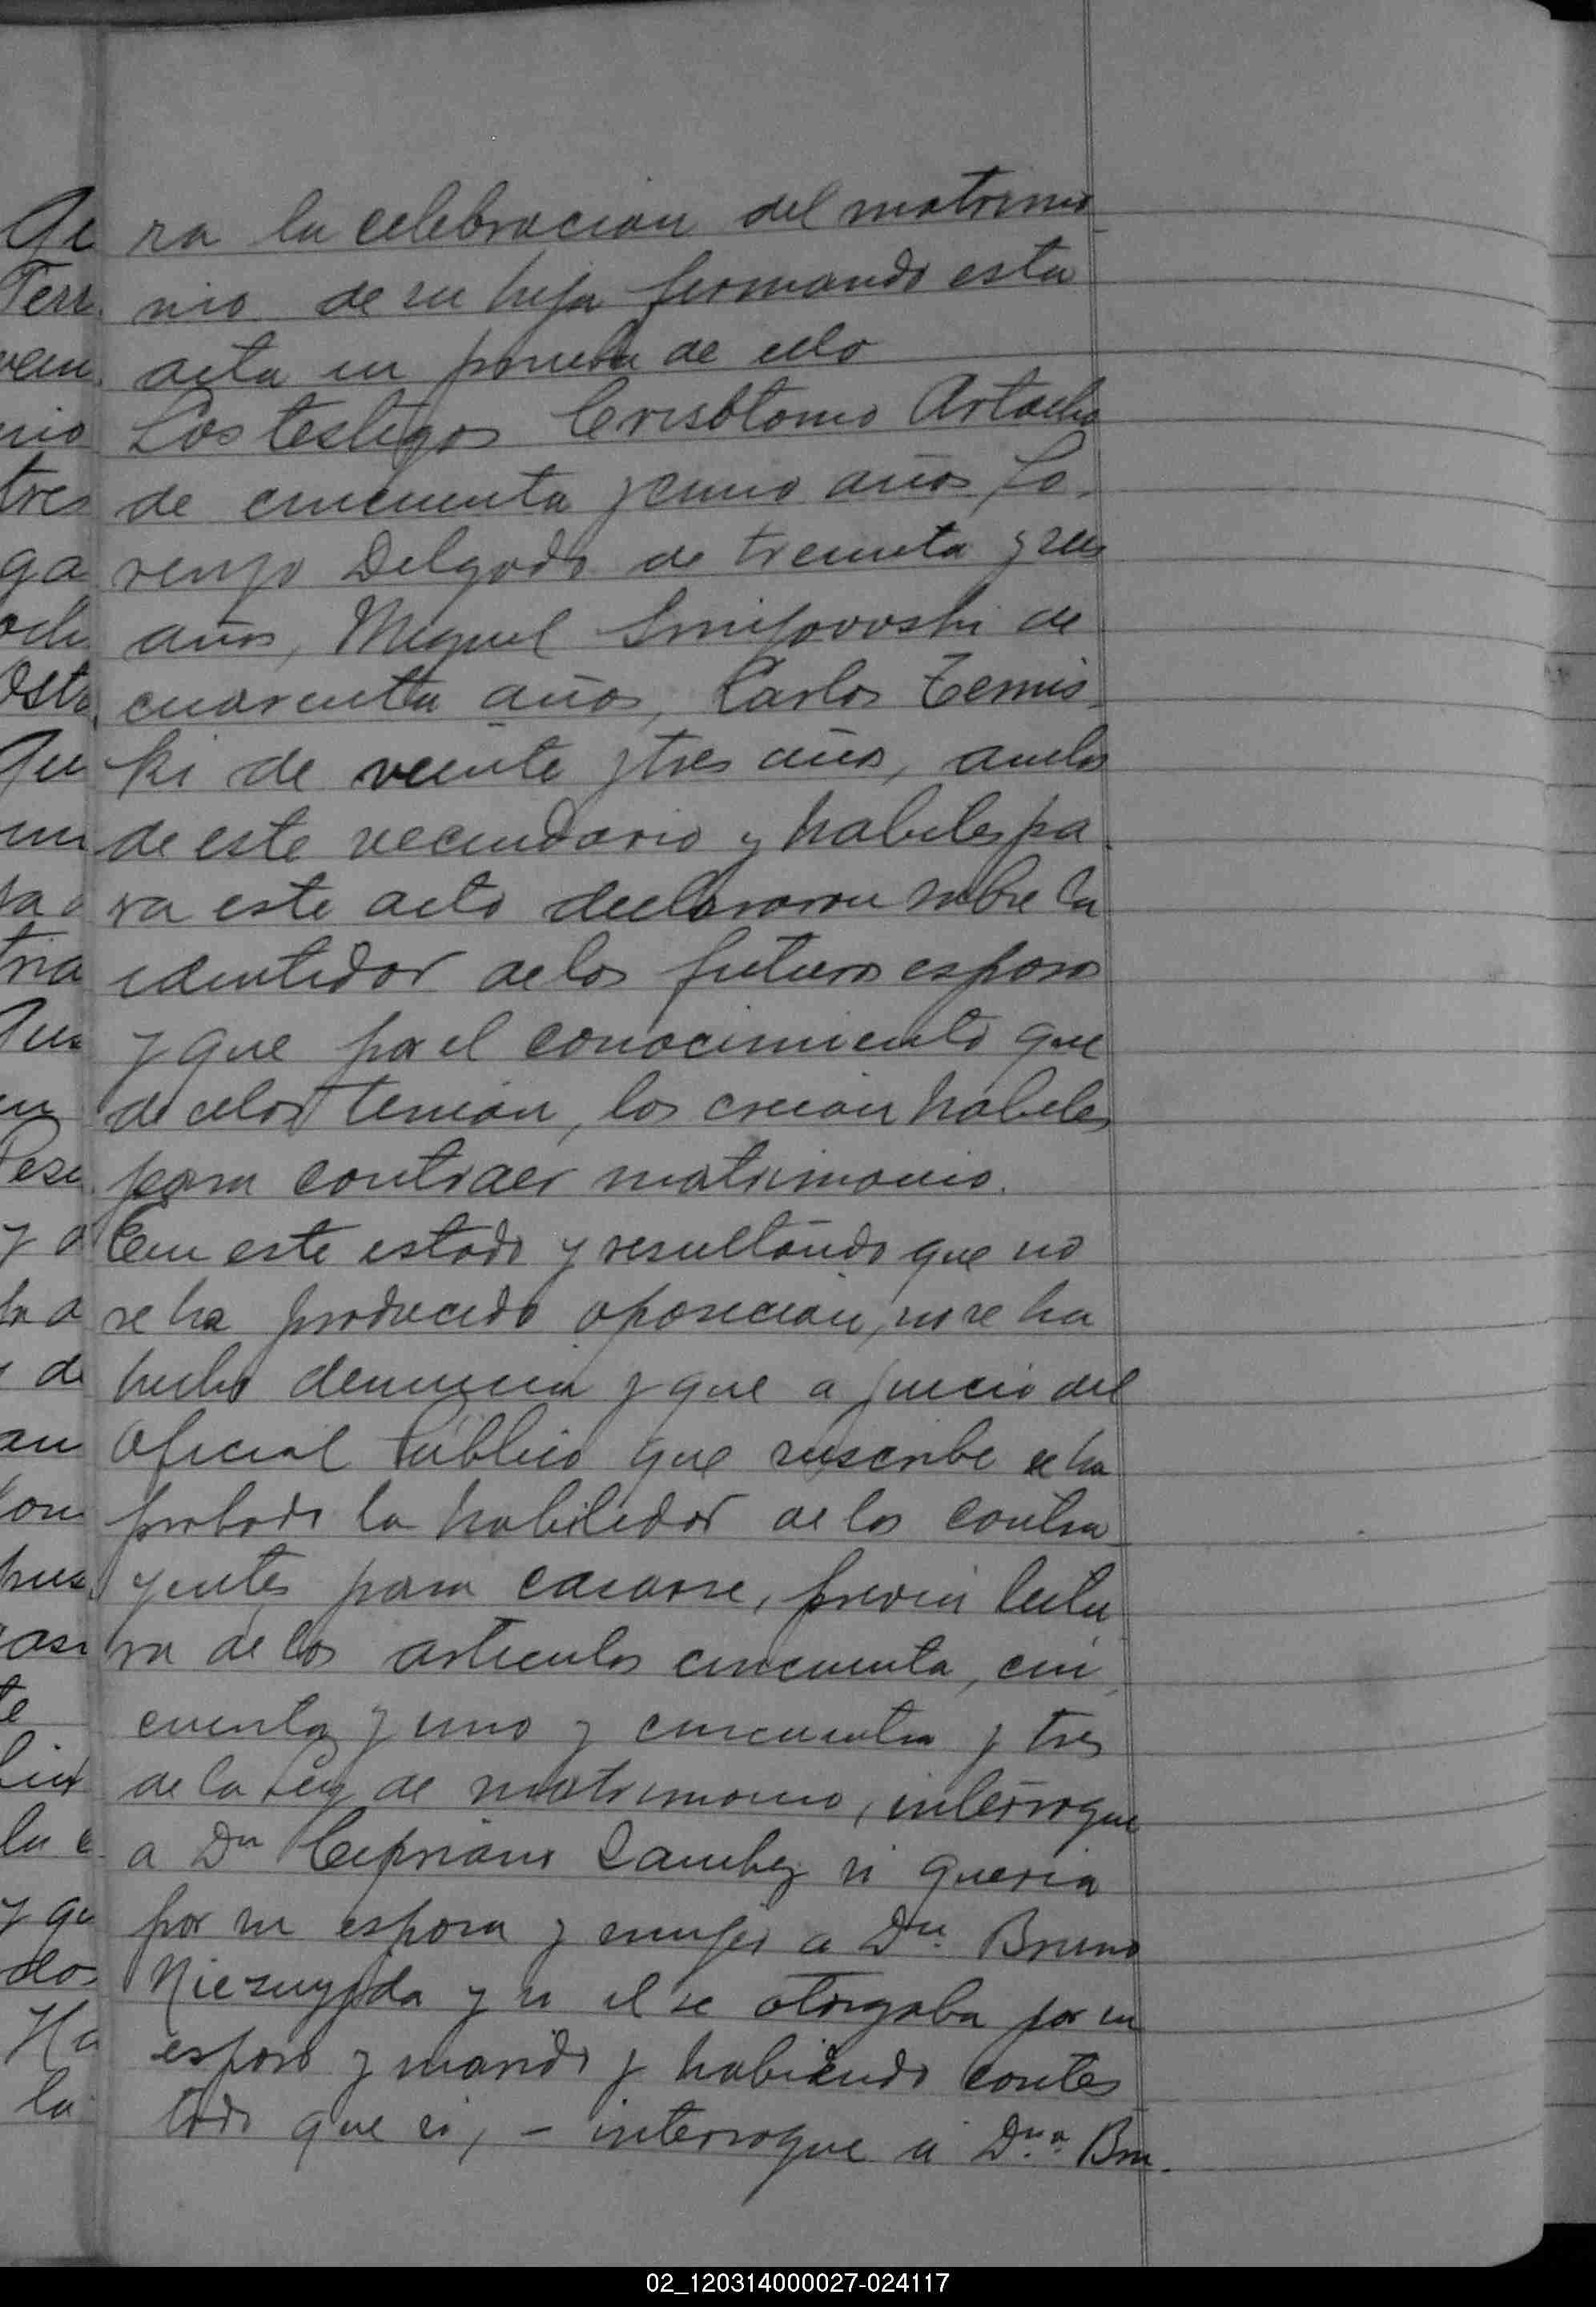 ra la celebracion del matrimo
nio de su hija firmando esta
acta en prueba de ello
Los testigos Crisóstomo Artacho
de cincuenta y cinco años, Lo-
renzo Delgado de treinta y seis
años, Miguel de
cuarenta años, Carlos Zemis-
ki de veinte y tres años, ambos
de este vecindario y habiles pa-
ra este acto declararon sobre la
identidad de los futuros esposos
y que por el conocimiento que
de ellos tenian, los creian habiles
para contraer matrimonio.
En este estado y resultando que no
se ha producido oposicion, ni se ha
hecho denuncia y que a juicio del
Oficial Público que suscribe se ha
probado la habilidad de los contra-
yentes para casarse, previa lectu-
ra de los articulos cincuenta, cin-
cuenta y uno y cincuenta y tres
de la Ley de matrimonio, interrogue
a Dn Cipriano Sanchez si queria
por su esposa y mujer a Dna. Bruno
y si el se otorgaba por su
esposo y marido y habiendo contes-
tado que si, - interrogue a Dna. Bru-
02_120314000027-024117